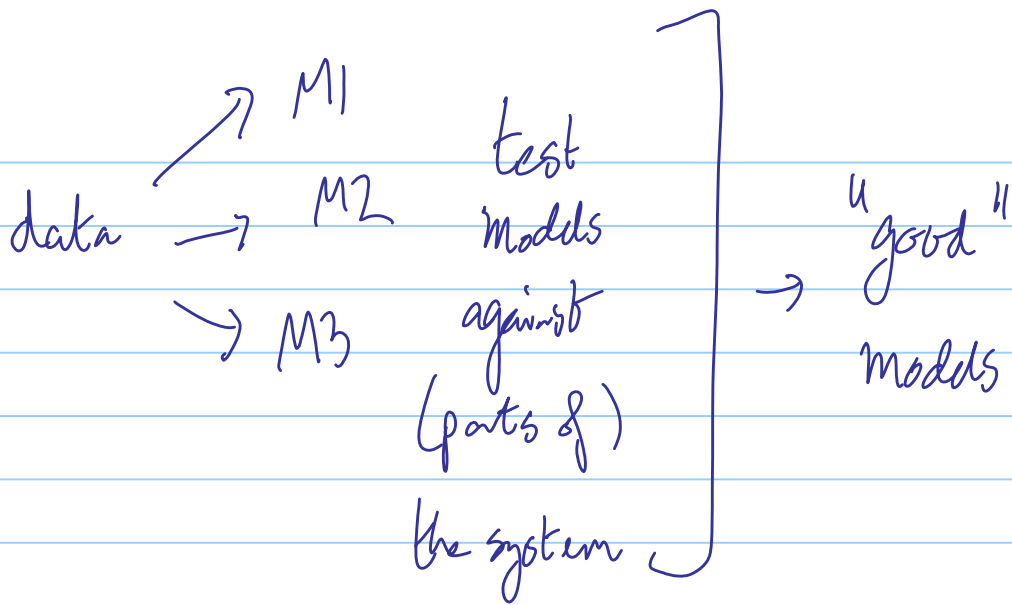 data
M1
M2
M3
test
models
against
(parts of)
the system
"good"
models